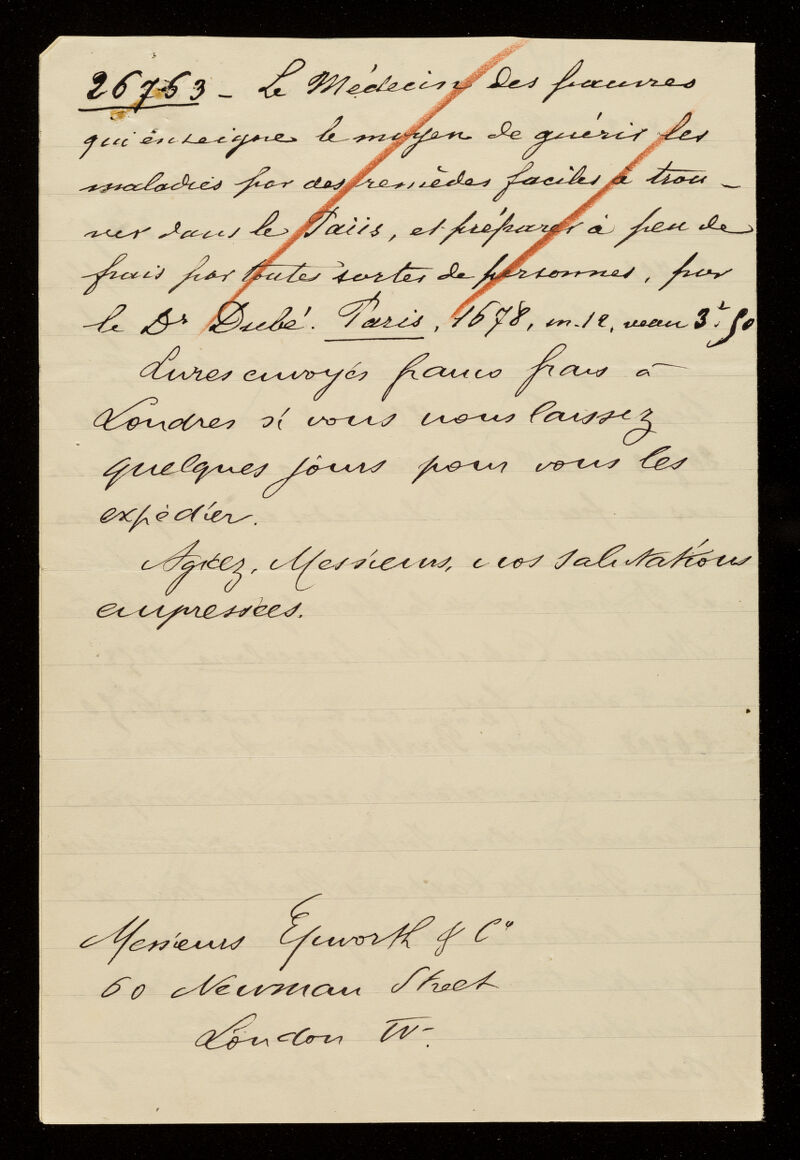 26763 - Le Médecin des pauvres
qui enseigne le moyen de guérir les
maladies par des remèdes faciles à trou-
ver dans le Païis, et préparer à peu de
frais par toutes sortes de personnes, par
le Dr Dubé. Paris, 1678, in-12, veau 3f.50
Livres envoyés franco frais à
Londres si vous nous laissez
quelques jours pour vous les
expédier.
Agréez, Messieurs, nos salutations
empressées.
Messieurs Epworth & Co
60 Newman Street
London W.